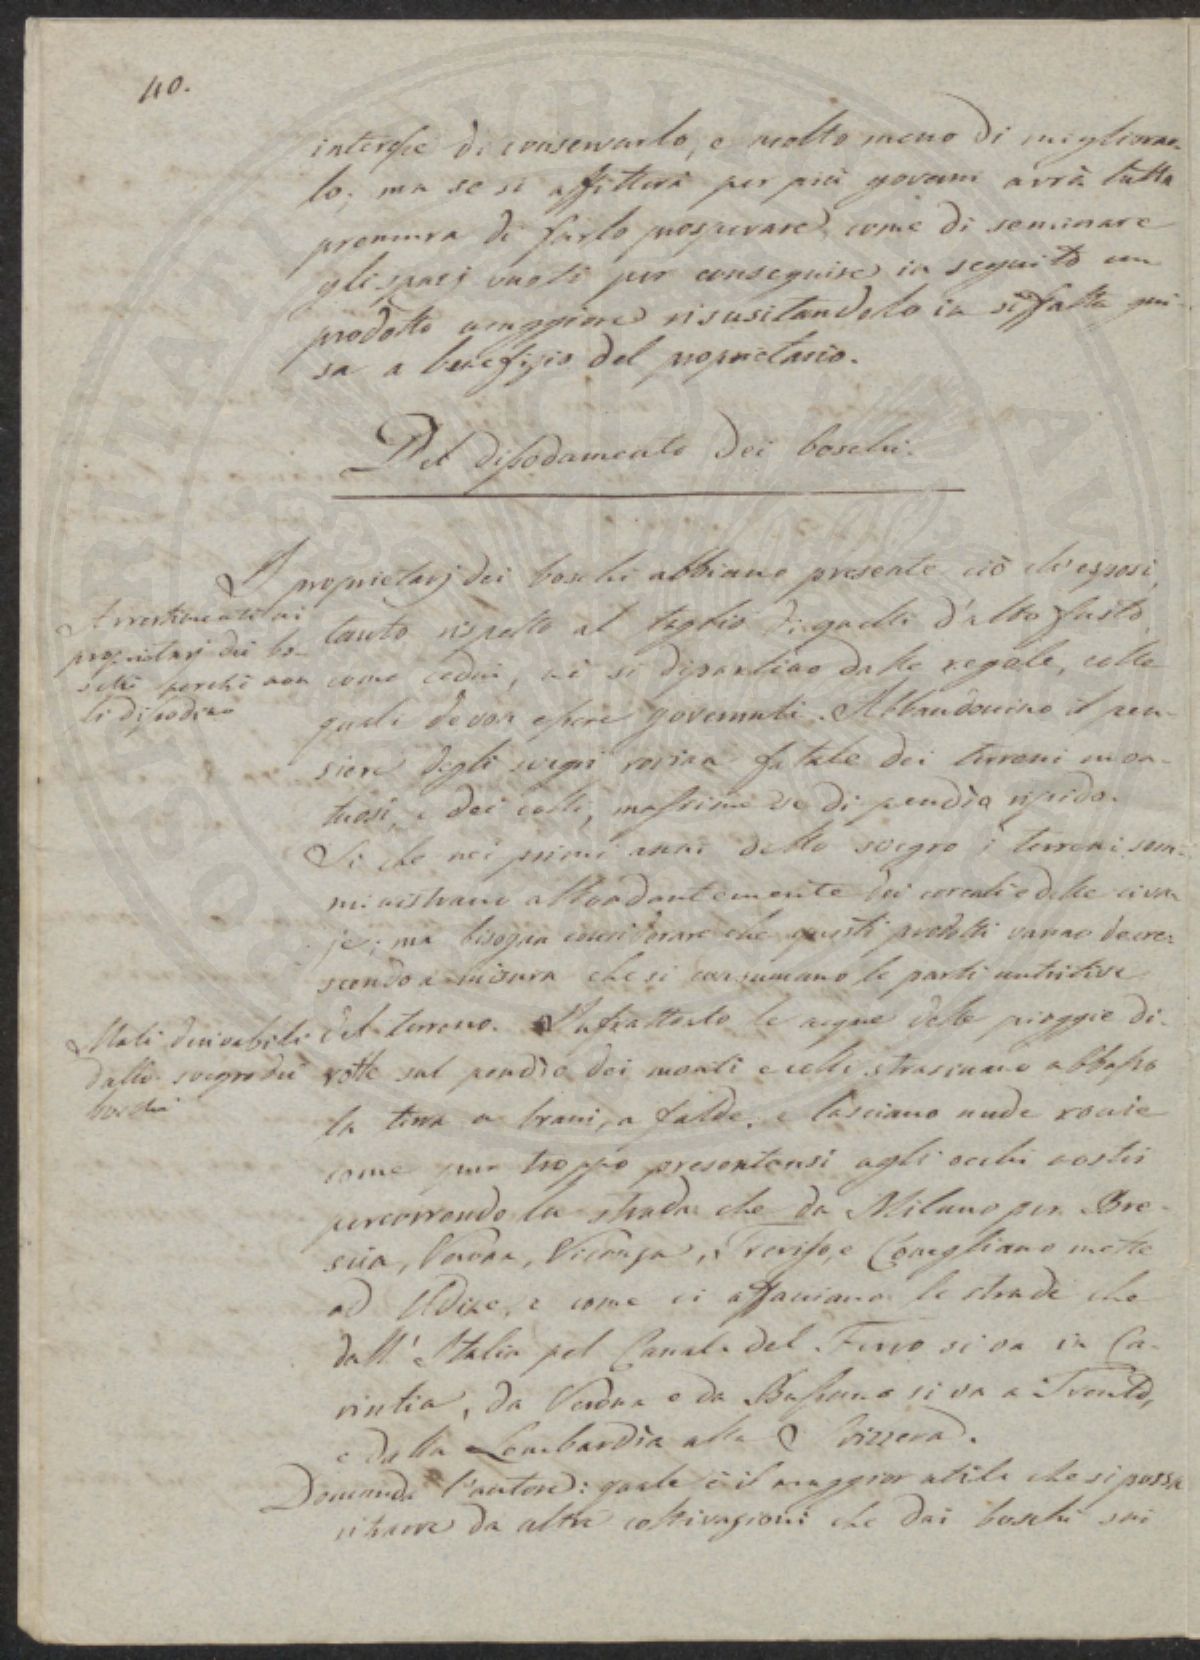 40.
interesse di conservarlo, e molto meno di migliorar-
lo; ma se si affitterà per più governi avrà tutta
premura di farlo prosperare, come di seminare
gli spazj vuoti per conseguire in seguito un
prodotto maggiore risusitandolo in siffatta gui-
sa a benefizio del proprietario.
Del dissodamento dei boschi.
I proprietarj dei boschi abbiano presente ciò ch'esposi,
Avvertimenti ai
proprietarj dei bo-
schi perchè non
li dissodino
tanto rispetto al taglio di quelli d'alto fusto,
come cedui, nè si dipartino dalle regole, colle
quali devon essere governati. Abbandonino il pen-
siere degli svegri rovina fatale dei terreni mon-
tuosi, e dei colli, massime se di pendìo ripido.
Si che nei primi anni dello svegro i terreni som-
ministrano abbondantemente dei cereali e delle civa-
je; ma bisogna considerare che questi prodotti vanno decre-
scendo a misura che si consumano le parti nutritive
del terreno. Infrattanto le acque delle pioggie di-
Mali derivabili
dallo svegro dei
boschi
rotte sul pendìo dei monti e colli strascinano abbasso
la terra a brani, a falde, e lasciano nude roccie
come pur troppo presentansi agli occhi nostri
percorrendo la strada che da Milano per Bre-
scia, Verona, Vicenza, Treviso, e Conegliano mette
ad Udine, e come ci affacciano le strade che
dall'Italia pel Canale del Ferro si va in Ca-
rintia, da Verona e da Bassano si va a Trento,
e dalla Lombardia alla Svizzera.
Domanda l'autore: quale è il maggior utile che si possa
ritrarre da altre coltivazioni che dai boschi sui